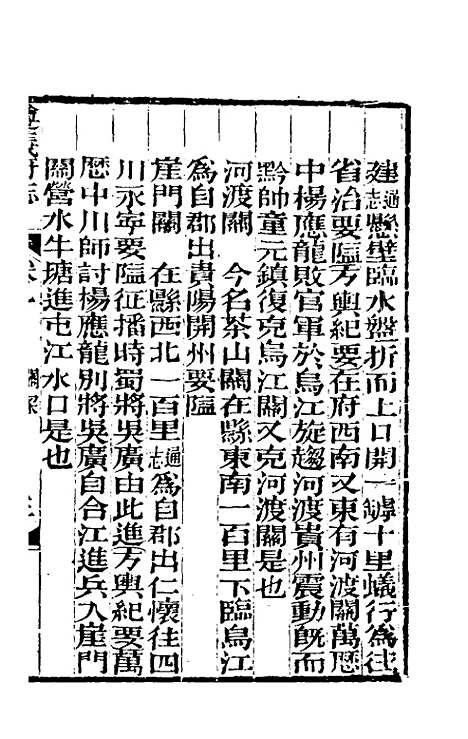 建通志懸壁臨水盤折而上口開一罅十里蟻行為往
省治要隘方輿紀要在府西南又東有河渡關萬歷
中楊應龍敗官軍於烏江旋趨河渡貴州震動既而
黔帥童元鎮復克烏江關又克河渡關是也
河渡關　今名茶山關在縣東南一百里下臨烏江
為自郡出貴陽開州要隘
崖門關　在縣西北一百里通志為自郡出仁懷往四
川永寧要隘征播時蜀將吳廣由此進方輿紀要萬
歷中川師討楊應龍別將吳廣自合江進兵入崖門
關營水牛塘進屯江水口是也
遵義府志　卷十　關梁